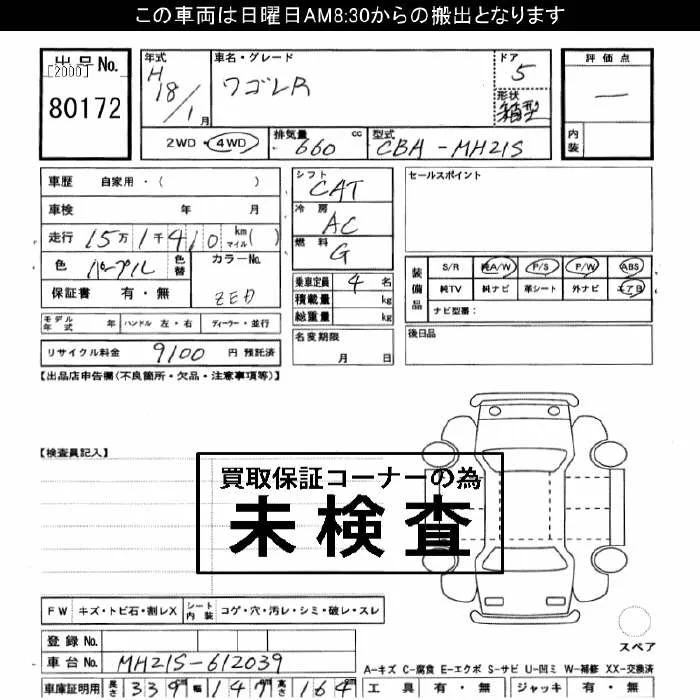 この車両は日曜日AM8:30からの搬出となります
出品No. [2000] 80172
年式 H18/1月
車名・グレード ワゴンR
ドア 5
形状 箱型
評価点 —
内装
2WD・4WD
排気量 660 cc
型式 CBA-MH21S
車歴 自家用・( )
車検 年 月
走行 15万1千410 km マイル( )
色 パープル 色替
カラーNo. ZED
保証書 有・無
シフト CAT
冷房 AC
燃料 G
乗車定員 4 名
積載量 kg
総重量 kg
セールスポイント
装備品 S/R 純A/W P/S P/W ABS
純TV 純ナビ 革シート 外ナビ エアB
ナビ型番:
モデル年式 年 ハンドル 左・右 ディーラー・並行
リサイクル料金 9100 円 預託済
名変期限 月 日
後日品
【出品店申告欄(不良箇所・欠品・注意事項等)】
【検査員記入】
買取保証コーナーの為
未検査
FW キズ・トビ石・割レX シート内装 コゲ・穴・汚レ・シミ・破レ・スレ
登録No.
車台No. MH21S-612039
スペア
A-キズ C-腐食 E-エクボ S-サビ U-凹ミ W-補修 XX-交換済
車庫証明用 長さ 339 幅 147 高さ 164
工具 有・無 ジャッキ 有・無